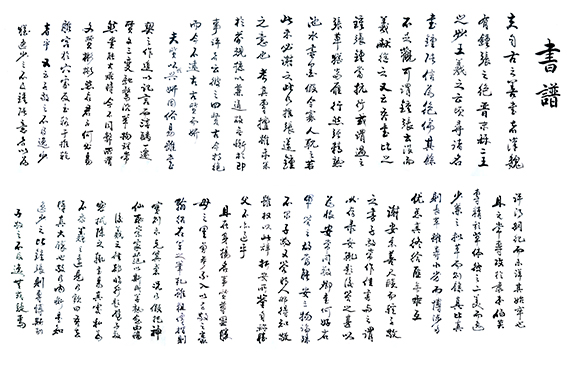 書譜
夫自古之善書者漢魏
有鍾張之絕晉末稱二王
之妙王羲之云頃尋諸名
書鍾張信為絕倫其餘
不足觀可謂鍾張云沒而
羲獻繼之又云吾書比之
鍾張鍾當抗行或謂過之
張草猶當雁行然張精熟
池水盡墨假令寡人耽之若
此未必謝之此乃推張邁鍾
之意也考其專擅雖未果
於前規摭以兼通故無慚於即
事評者云彼之四賢古今特絕
而今不逮古古質而今妍
夫質以代興妍因俗易雖書
契之作適以記言而淳醨一遷
質文三變馳騖沿革物理常
然貴能古不乖時今不同弊所謂
文質彬彬然後君子何必易
雕宮於穴處反玉輅於椎輪
者乎又云子敬之不及逸少
猶逸少之不及鍾張意者以為
評得綱紀而未詳其始卒也
且元常專工於隸書伯英
尤精於草體彼之二美而逸
少兼之擬草則餘真比真
則長草雖專工小劣而博涉多
優總其終始匪無乖互
謝安素善尺牘而輕子敬
之書子敬嘗作佳書與之謂
必存錄安輒題後答之甚以
為恨安嘗問敬卿書何如右
軍答云故當勝安云物論殊
不爾子敬又答時人那得知敬
雖權以此辭折安所鑒自稱勝
父不亦過乎
且立身揚名事資尊顯勝
母之里曾參不入以子敬之豪
翰紹右軍之筆札雖復粗傳楷則
實恐未克箕裘況乃假託神
仙恥崇家範以斯成學孰愈面牆
後羲之往都臨行題壁子敬
密拭除之輒書易其處私為
不惡羲之還見乃歎曰吾去
時真大醉也敬乃內慚是知
逸少之比鍾張則專博斯別
子敬之不及逸少無或疑焉